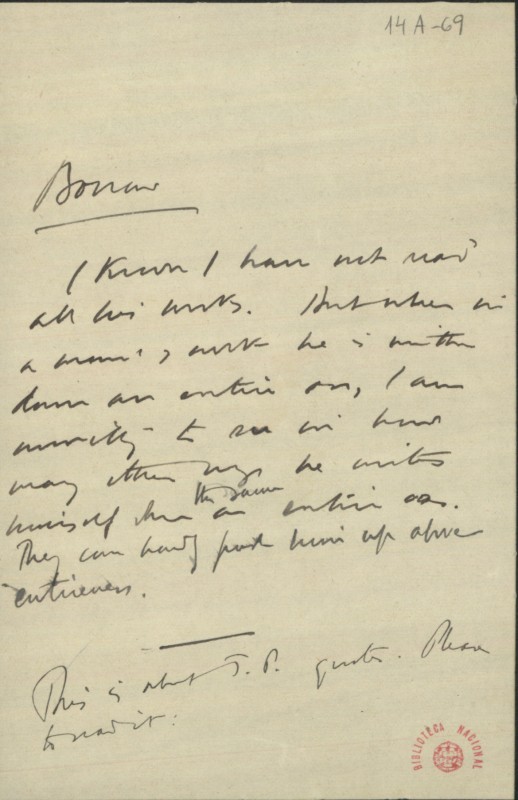 14A-69
Borrow
I know I have not read
all his works. But when in
a man's work he is written
down an entire ass, I am
unwilling to see in how
many other ways he writes
himself down the same
an entire ass.
They can hardly push him up above
entireness.
This is what T. P. quotes. Please
to read it:
BIBLIOTECA NACIONAL